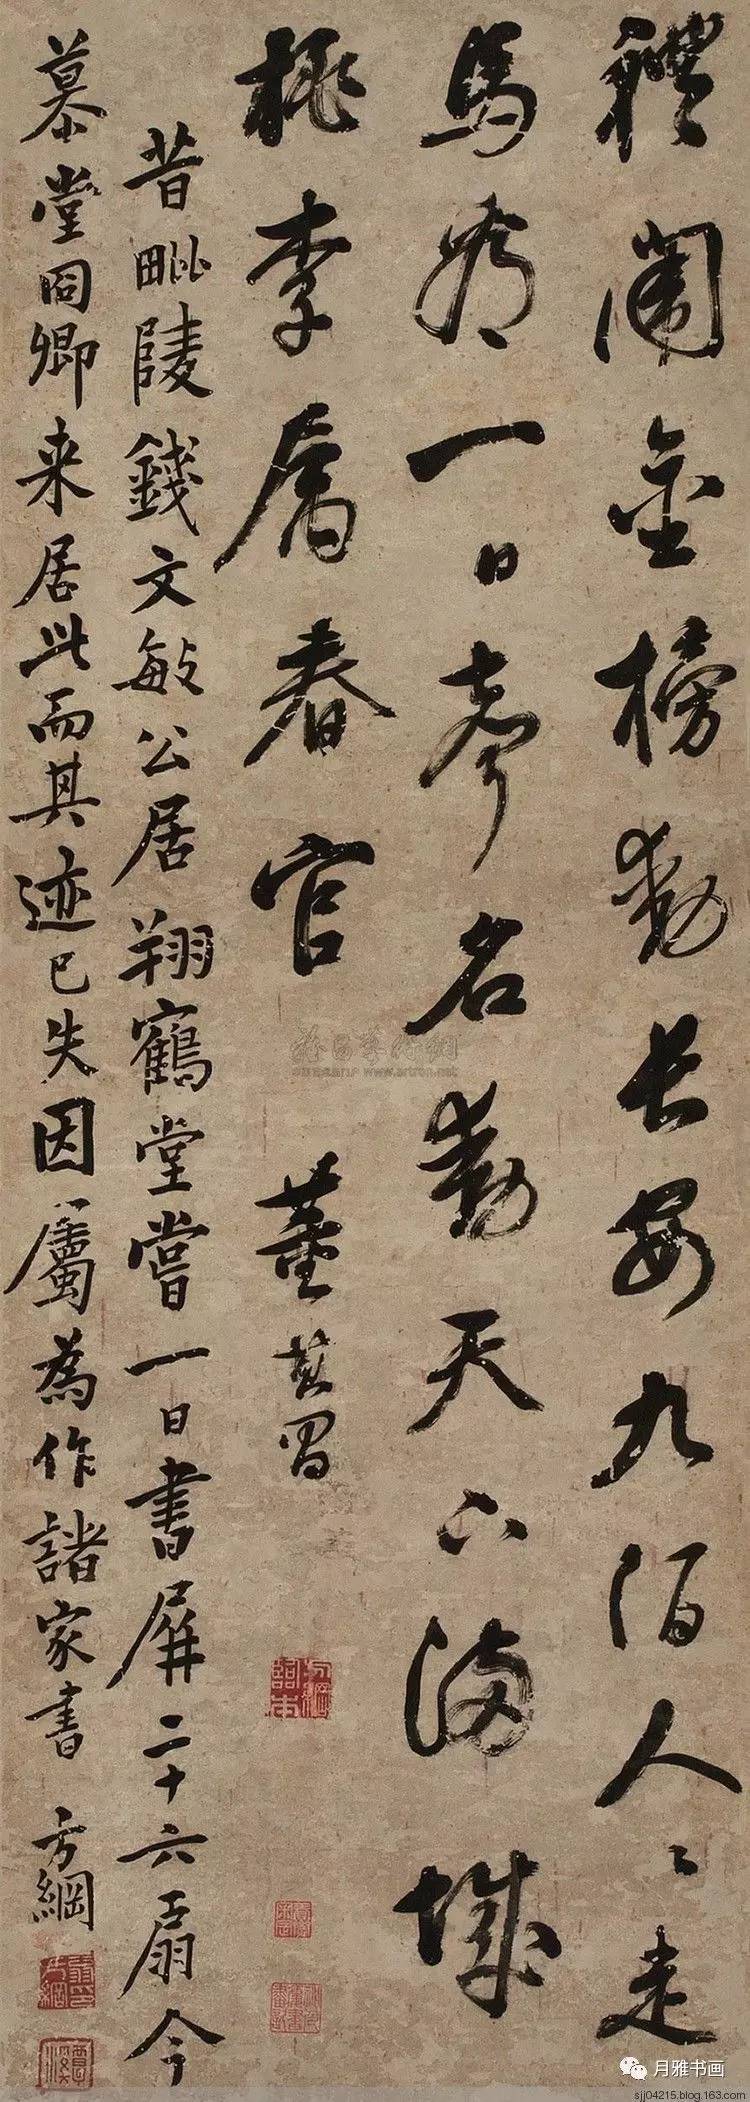 禮闈金榜動長安九陌人〻走
馬看一日聲名動天下滿城
桃李屬春官
董其昌
昔毗陵錢文敏公居翔鶴堂嘗一日書屏二十六扇今
慕堂同卿来居此而其迹已失因屬為作諸家書
方綱
月雅书画
sjj04215.blog.163.com
www.artron.net